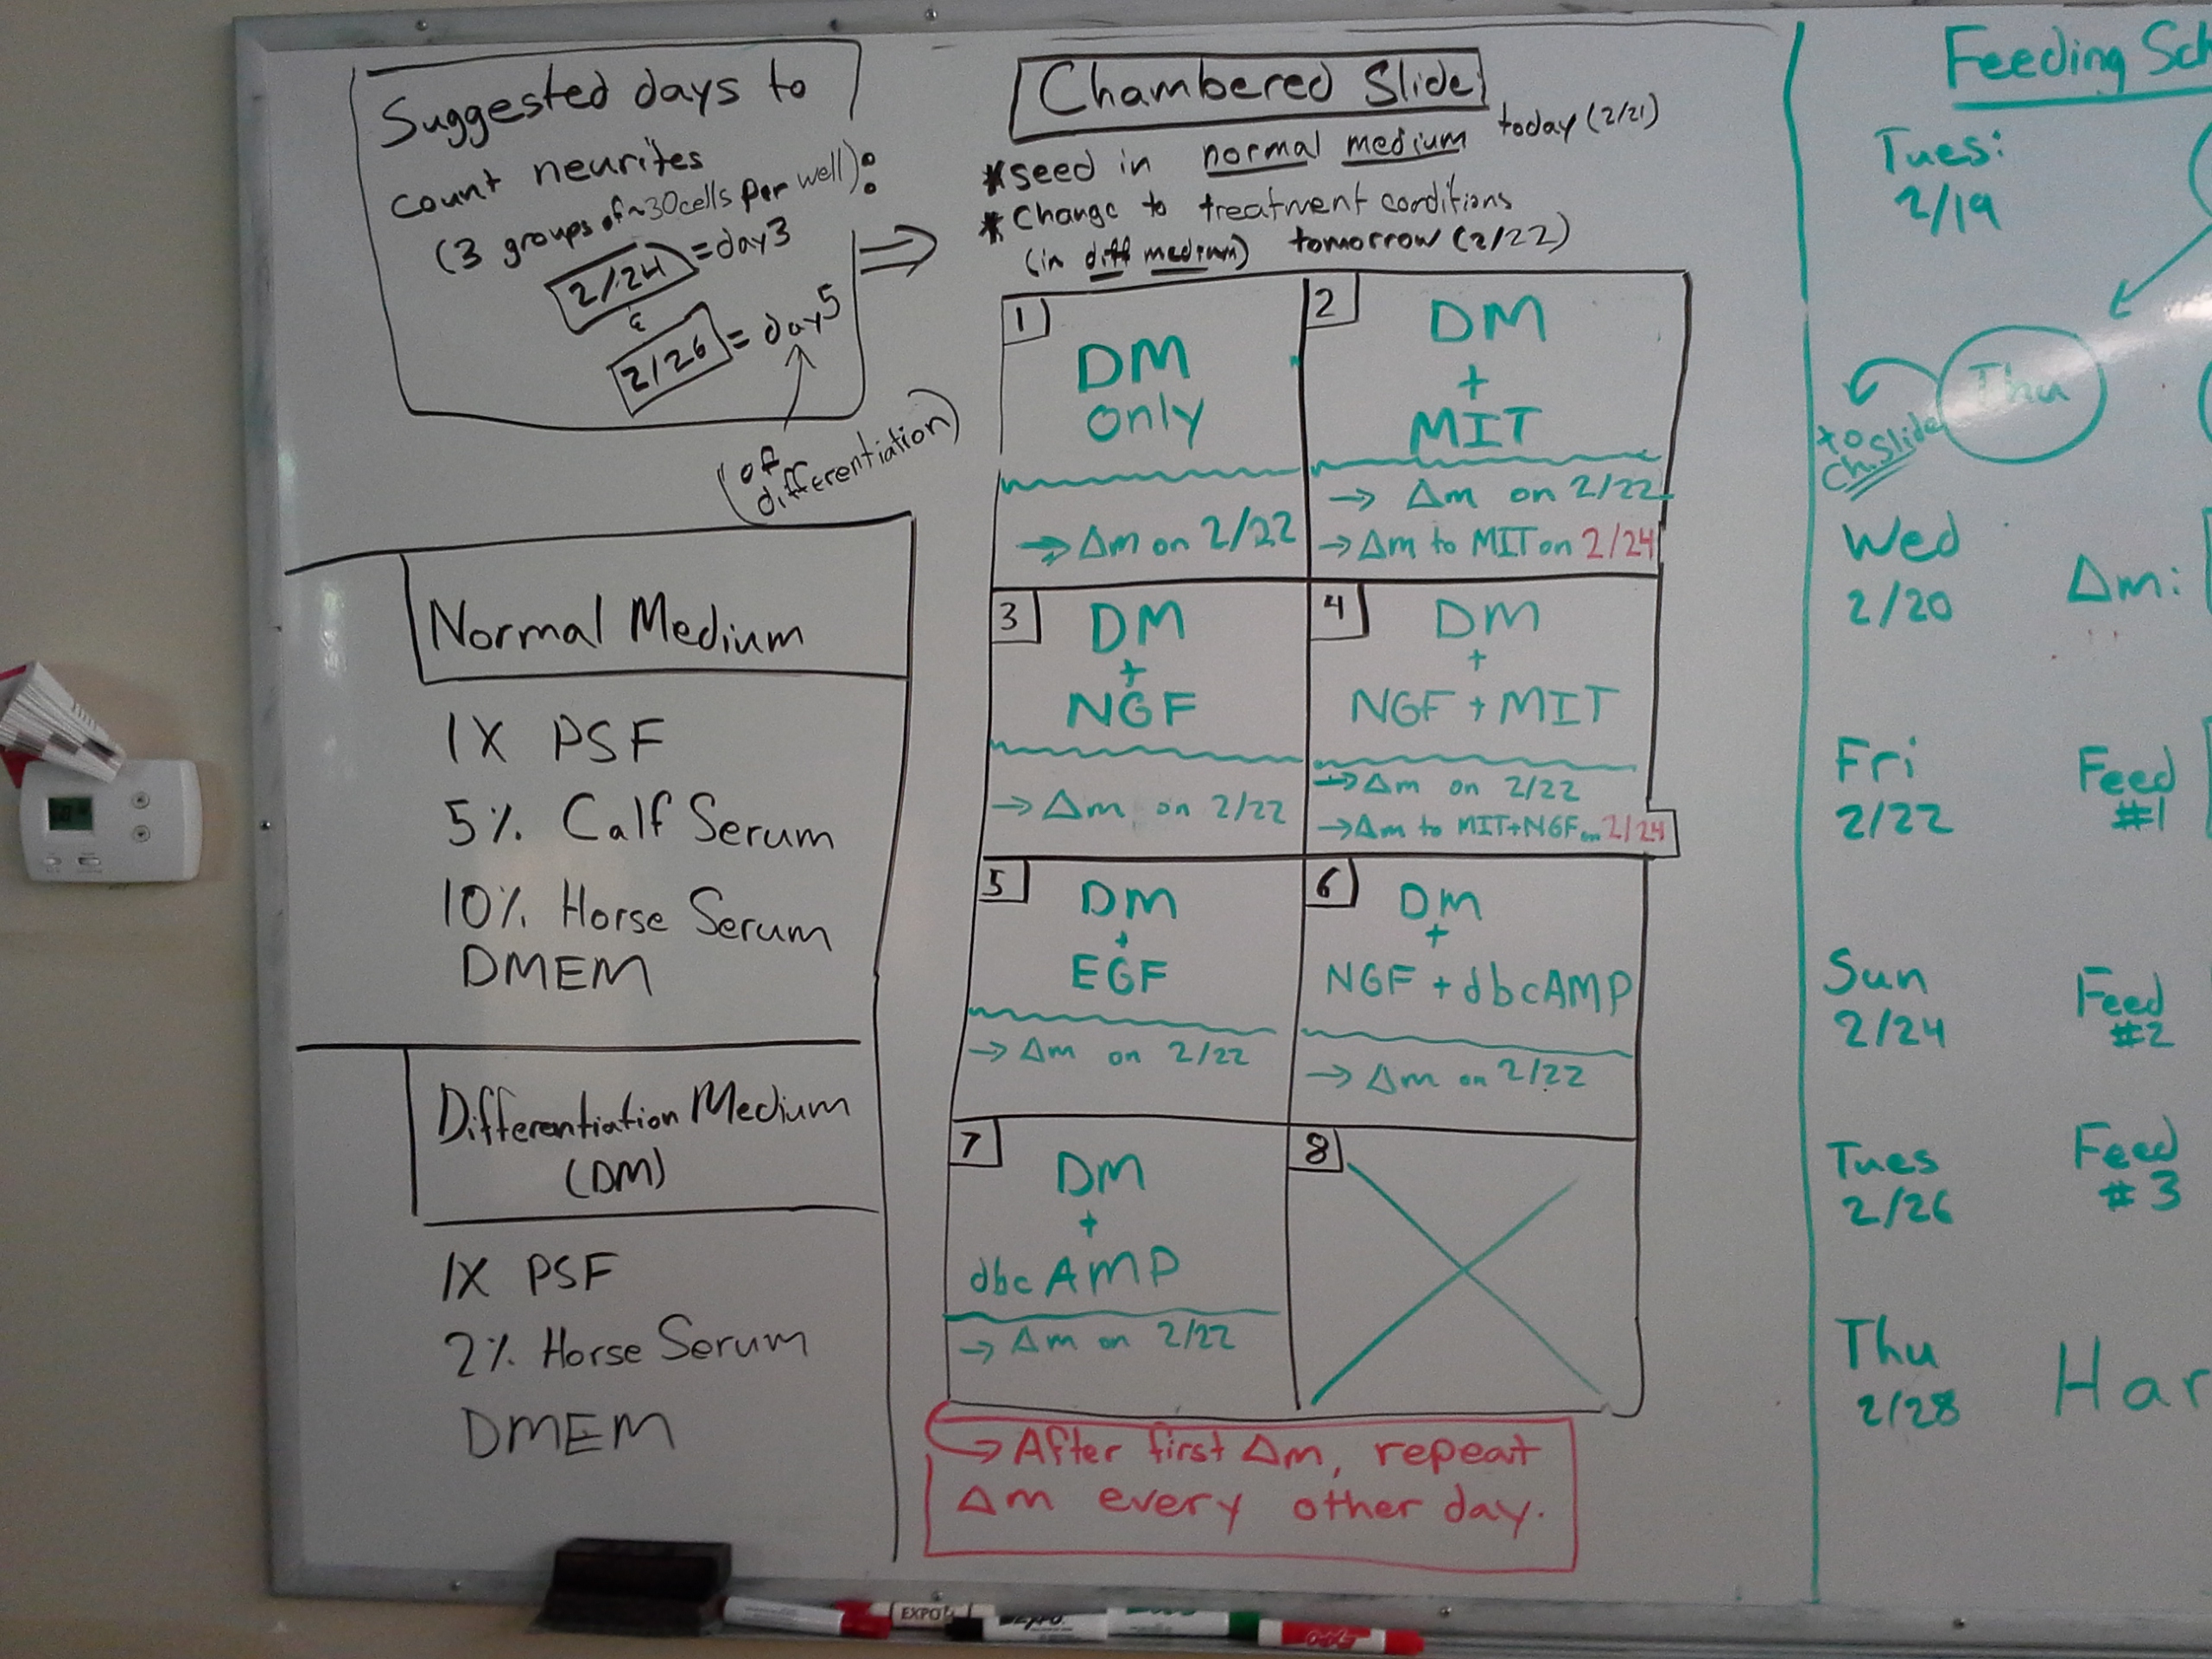 Suggested days to
count neurites
(3 groups of ~30 cells per well):
2/24 = day 3
&
2/26 = day 5
(of
differentiation)
Normal Medium
1X PSF
5% Calf Serum
10% Horse Serum
DMEM
Differentiation Medium
(DM)
1X PSF
2% Horse Serum
DMEM
Chambered Slide
* seed in normal medium today (2/21)
* Change to treatment conditions
(in diff medium) tomorrow (2/22)
1
DM
only
→ Δm on 2/22
2
DM
+
MIT
→ Δm on 2/22
→ Δm to MIT on 2/24
3
DM
+
NGF
→ Δm on 2/22
4
DM
+
NGF + MIT
→ Δm on 2/22
→ Δm to MIT+NGF on 2/24
5
DM
+
EGF
→ Δm on 2/22
6
DM
+
NGF + dbcAMP
→ Δm on 2/22
7
DM
+
dbcAMP
→ Δm on 2/22
8
→ After first Δm, repeat
Δm every other day.
Feeding Sch
Tues:
2/19
Thu
to
Ch. Slide
Wed
2/20
Δm:
Fri
2/22
Feed
#1
Sun
2/24
Feed
#2
Tues
2/26
Feed
#3
Thu
2/28
Har
EXPO